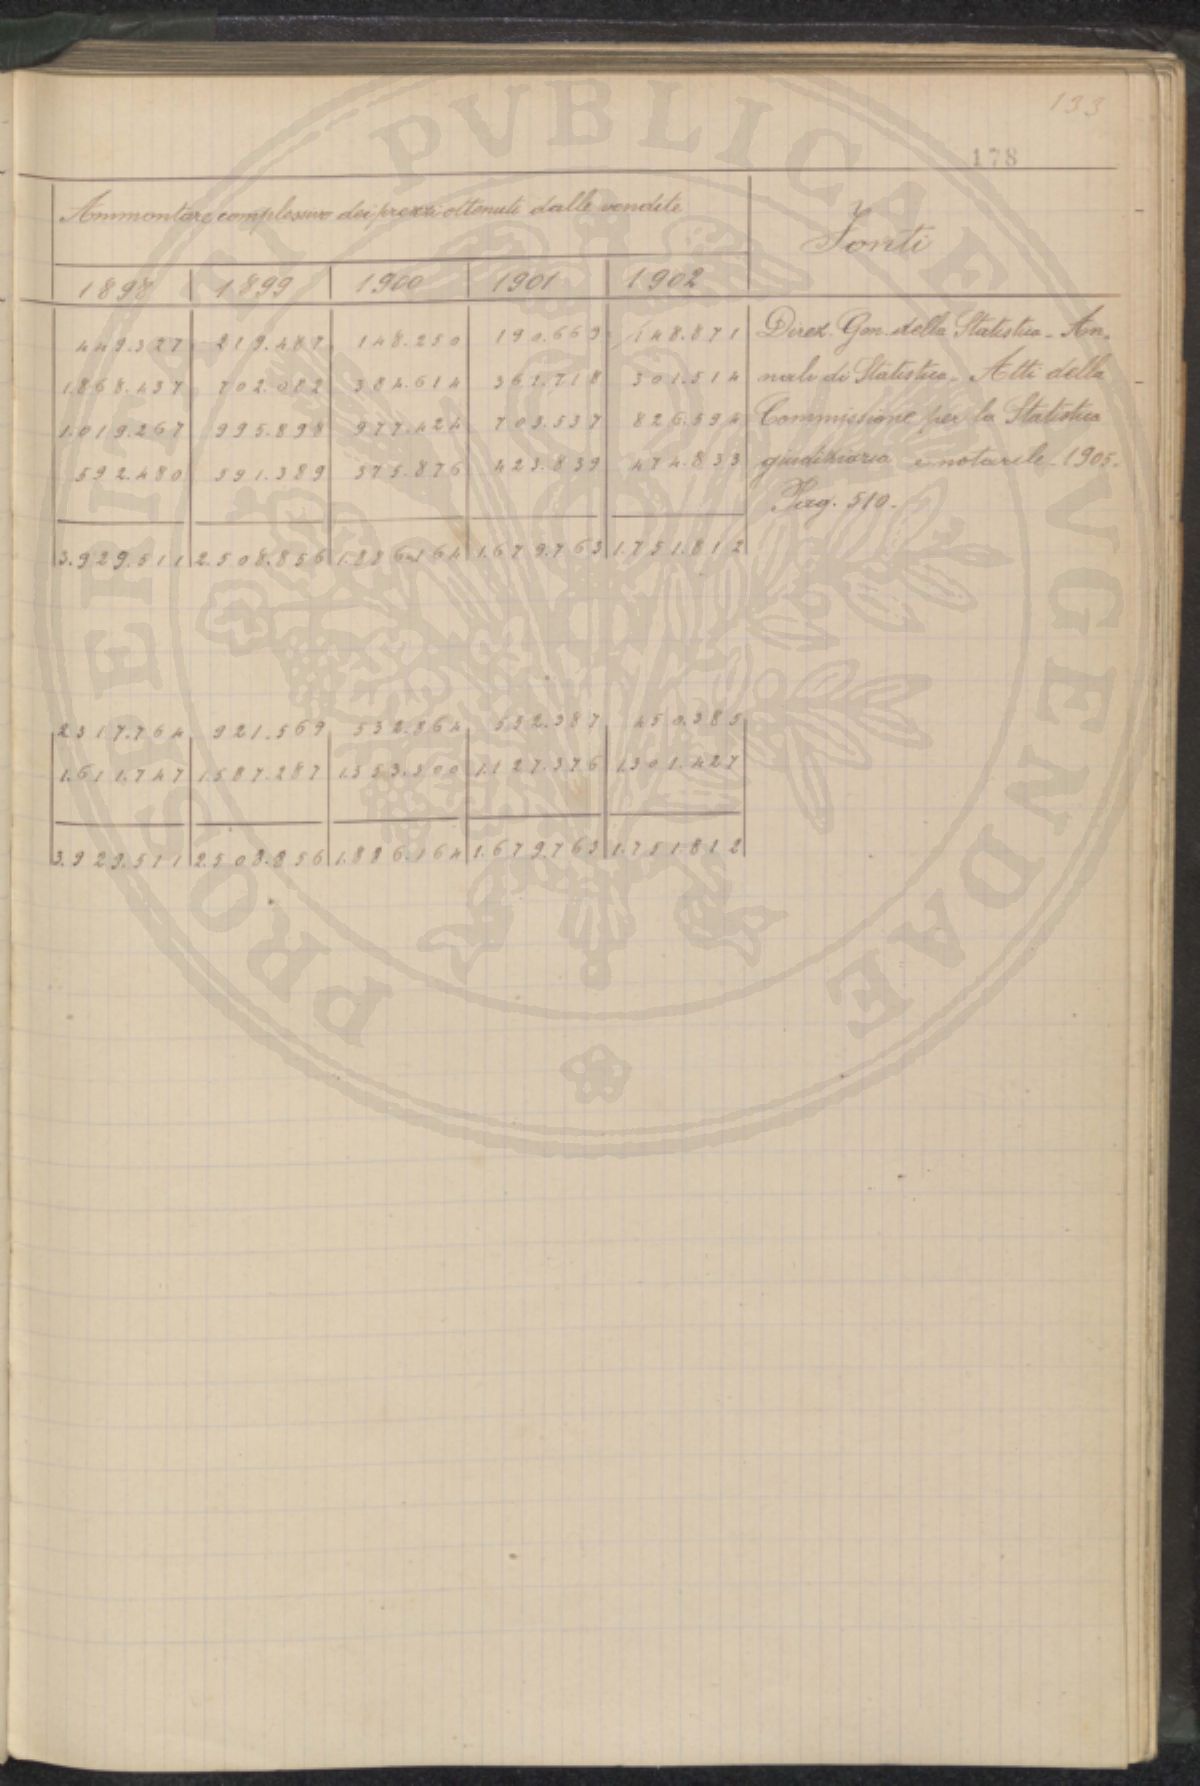 133
178
Ammontare complessivo dei prezzi ottenuti dalle vendite
Fonti
1898 1899 1900 1901 1902
449.327 219.487 148.250 190.669 148.871 Direz. Gen. della Statistica - An-
1868.437 702.082 384.614 361.718 301.514 nali di Statistica - Atti della
1.019.267 995.898 977.424 703.537 826.594 Commissione per la Statistica
592.480 591.389 375.876 423.839 474.833 giudiziaria e notarile - 1905 -
Pag. 510 -
3.929.511 2.508.856 1.886.164 1.679.763 1.751.812
2317.764 921.569 532.864 552.387 450.385
1.611.747 1.587.287 1.353.300 1.127.376 1.301.427
3.929.511 2.508.856 1.886.164 1.679.763 1.751.812
PROSPERITATI PVBLICAE AVGENDAE